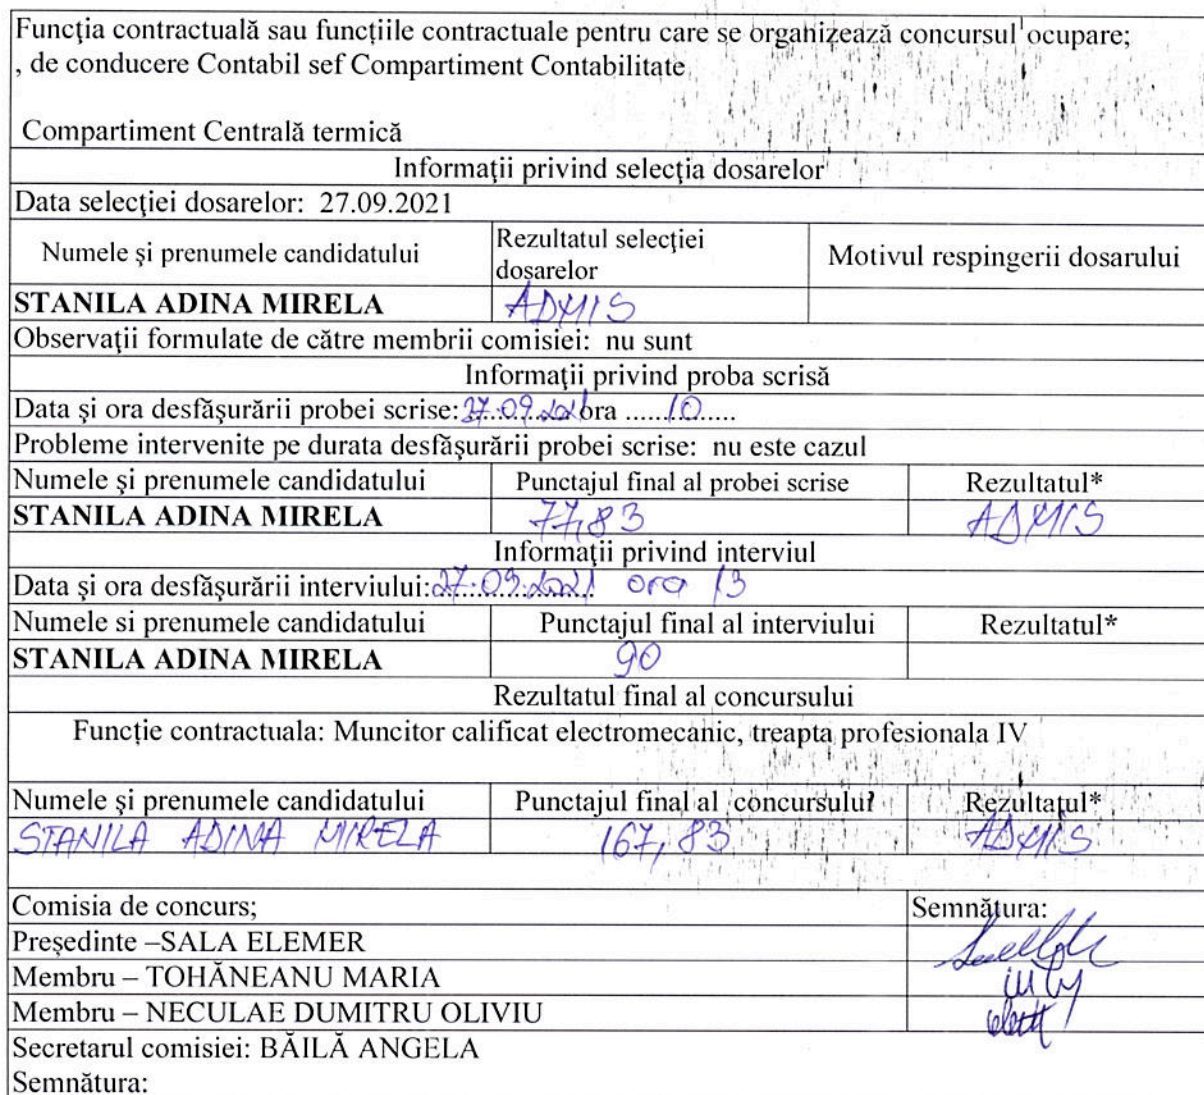 Funcţia contractuală sau funcțiile contractuale pentru care se organizează concursul ocupare;
, de conducere Contabil sef Compartiment Contabilitate
Compartiment Centrală termică
Informaţii privind selecţia dosarelor
Data selecţiei dosarelor: 27.09.2021
Numele şi prenumele candidatului
Rezultatul selecţiei
dosarelor
Motivul respingerii dosarului
STANILA ADINA MIRELA ADMIS
Observaţii formulate de către membrii comisiei: nu sunt
Informaţii privind proba scrisă
Data şi ora desfăşurării probei scrise: 27.09.2021 ora ......10......
Probleme intervenite pe durata desfăşurării probei scrise: nu este cazul
Numele şi prenumele candidatului Punctajul final al probei scrise Rezultatul*
STANILA ADINA MIRELA 77,83 ADMIS
Informaţii privind interviul
Data şi ora desfăşurării interviului: 27.09.2021 ora 13
Numele si prenumele candidatului Punctajul final al interviului Rezultatul*
STANILA ADINA MIRELA 90
Rezultatul final al concursului
Funcție contractuala: Muncitor calificat electromecanic, treapta profesionala IV
Numele şi prenumele candidatului Punctajul final al concursului Rezultatul*
STANILA ADINA MIRELA 167,83 ADMIS
Comisia de concurs; Semnătura:
Președinte –SALA ELEMER
Membru – TOHĂNEANU MARIA
Membru – NECULAE DUMITRU OLIVIU
Secretarul comisiei: BĂILĂ ANGELA
Semnătura: